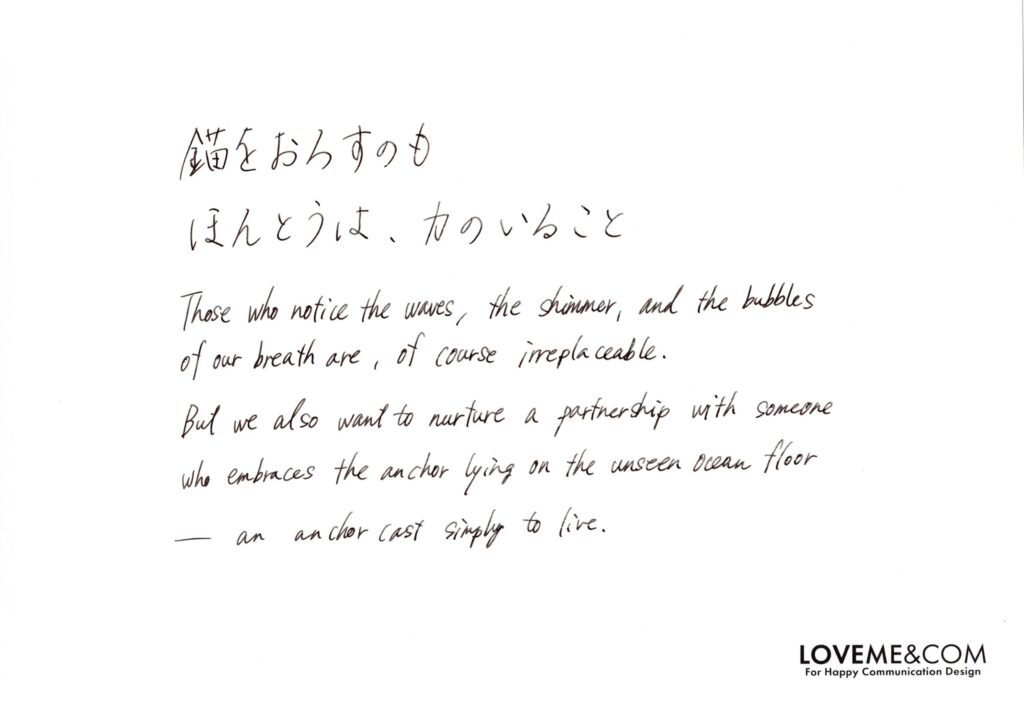 錨をおろすのも
ほんとうは、力のいること
Those who notice the waves, the shimmer, and the bubbles
of our breath are, of course irreplaceable.
But we also want to nurture a partnership with someone
who embraces the anchor lying on the unseen ocean floor
— an anchor cast simply to live.
LOVEME&COM
For Happy Communication Design